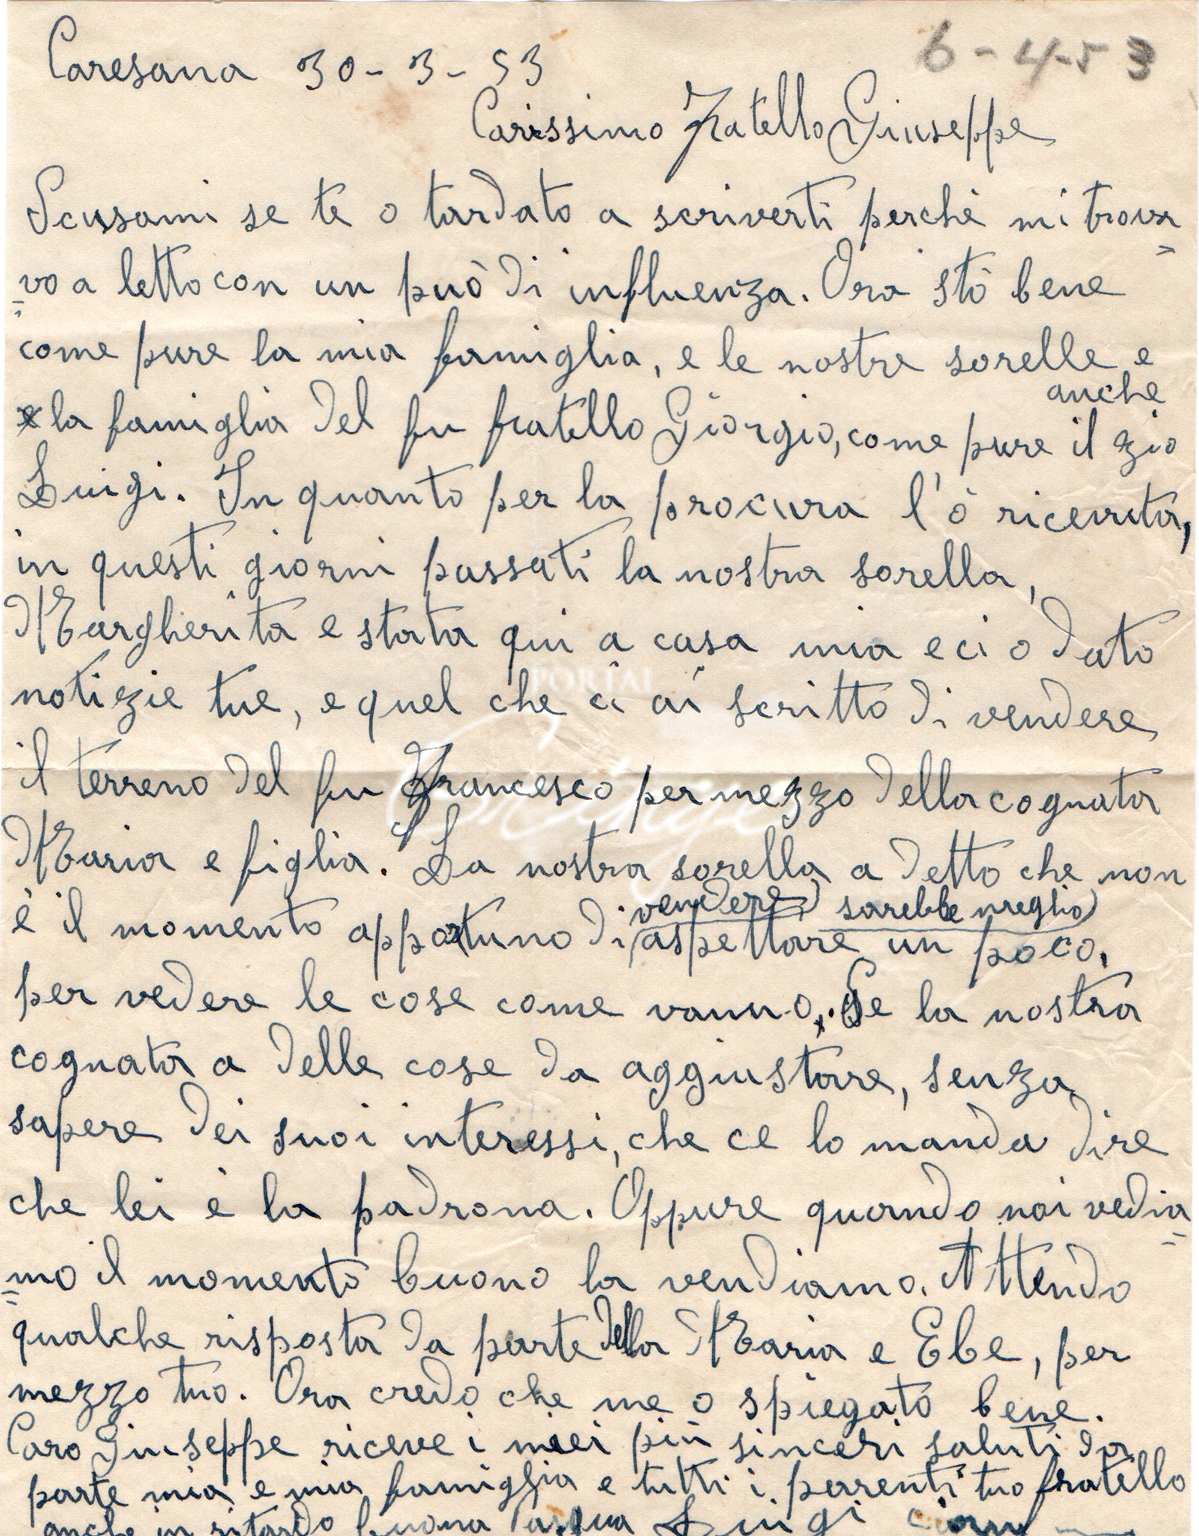 Caresana 30-3-53
6-4-53
Carissimo Fratello Giuseppe
Scusami se te o tardato a scriverti perchè mi trova
vo a letto con un può di influenza. Ora stò bene
come pure la mia famiglia, e le nostre sorelle e
anche
la famiglia del fu fratello Giorgio, come pure il zio
Luigi. In quanto per la procura l'ò ricevuta,
in questi giorni passati la nostra sorella,
Margherita e stata qui a casa mia e ci o dato
notizie tue, e quel che ci ai scritto di vendere
il terreno del fu Francesco per mezzo della cognata
Maria e figlia. La nostra sorella a detto che non
vendere) sarebbe meglio)
è il momento opportuno di (aspettare un poco,
per vedere le cose come vanno. Se la nostra
cognata a delle cose da aggiustare, senza
sapere dei suoi interessi, che ce lo manda dire
che lei è la padrona. Oppure quando noi vedia
mo il momento buono la vendiamo. Attendo
qualche risposta da parte della Maria e Ebe, per
mezzo tuo. Ora credo che me o spiegato bene.
Caro Giuseppe riceve i miei più sinceri saluti da
parte mia e mia famiglia e tutti i parenti tuo fratello
anche in ritardo buona Pasqua Luigi
PORTAL